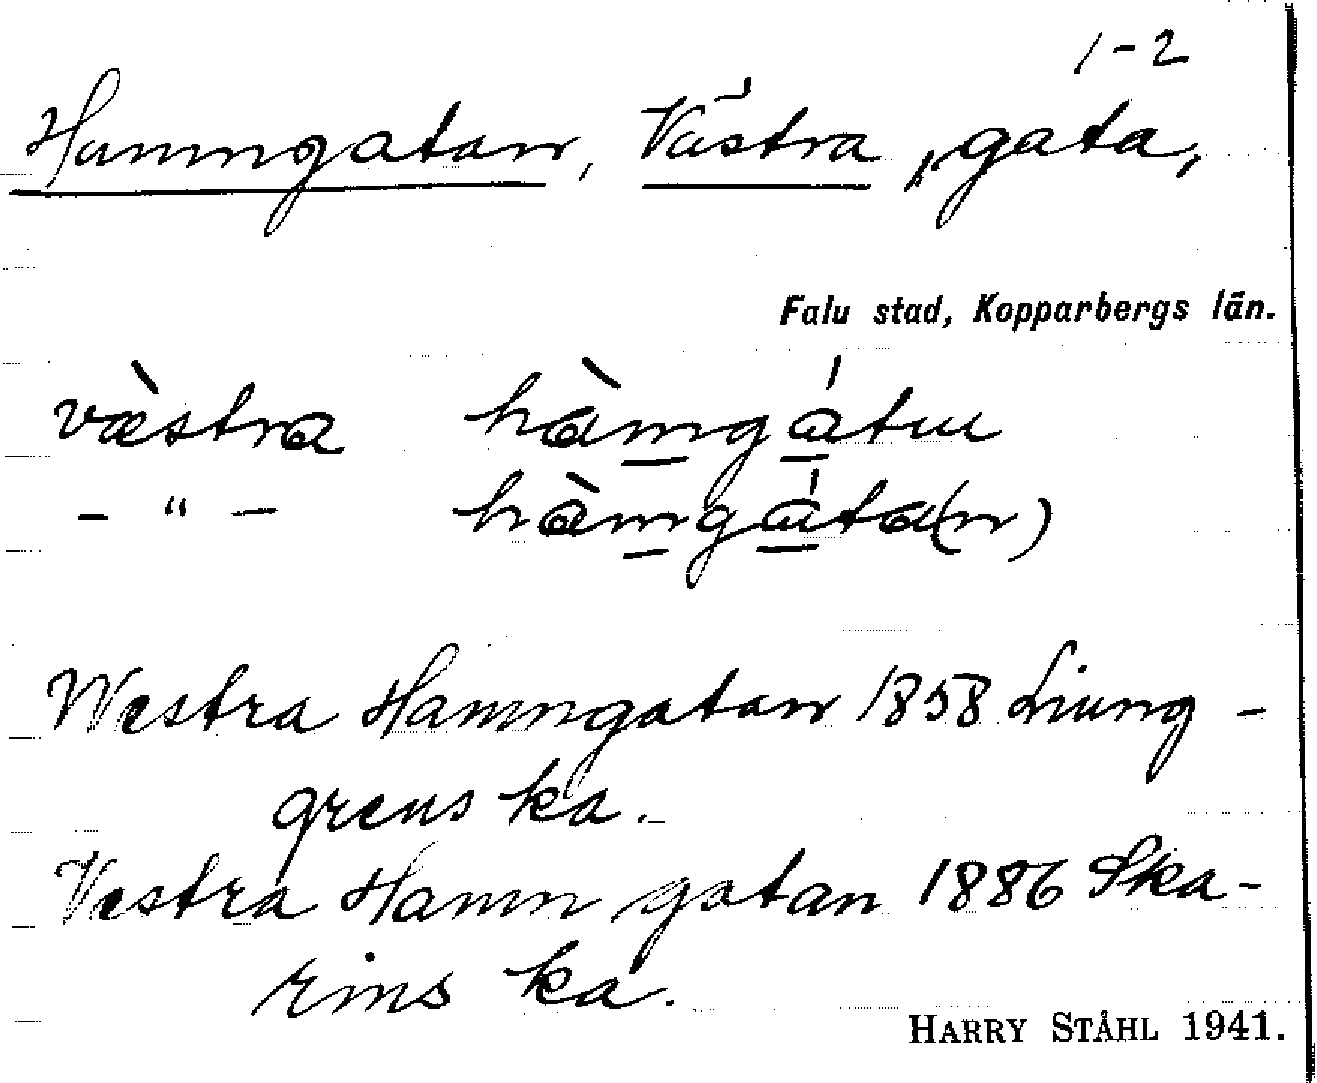 1-2
Hamngatan, Västra, gata,
Falu stad, Kopparbergs län.
væ̀stra hàmgátu
- " - hàmgáta(n)
Westra Hamngatan 1858 Liung-
grens ka.
Vestra Hamn gatan 1886 Ska-
rins ka.
HARRY STÅHL 1941.